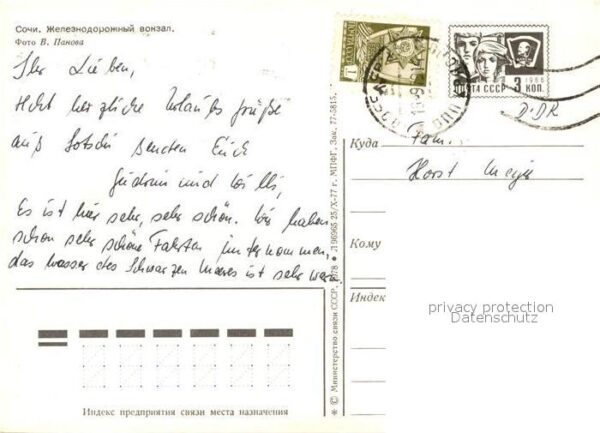 Сочи. Железнодорожный вокзал.
Фото В. Панова
Ihr Lieben,
Recht herzliche Urlaubsgrüße
aus Sotschi senden Euch
Gudrun und
Es ist hier sehr, sehr schön. Wir haben
schon sehr schöne Fahrten unternommen,
das Wasser des Schwarzen Meeres ist sehr
Индекс предприятия связи места назначения
* © Министерство связи СССР. 1978 * Л 96965 25/X-77 г. МПФГ. Зак. 77-5815.
1
ПОЧТА СССР
1966
3 КОП.
DDR
Куда
Fam.
Horst
Кому
Индек
privacy protection
Datenschutz